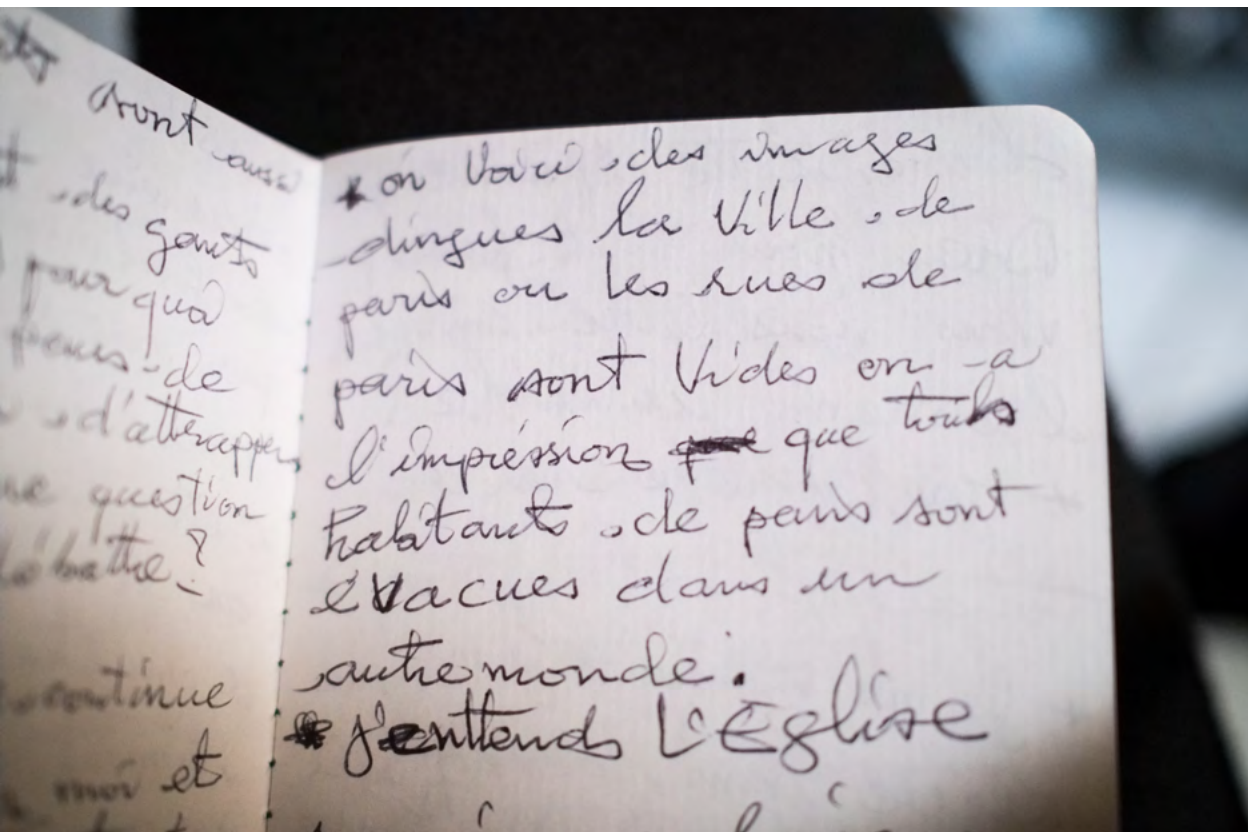 sont aussi
des gants
pour quoi
de
d'attrapper
question
continue
moi et
* on voici des images
dingues la Ville de
paris ou les rues de
paris sont Vides on a
l'impréssion que que touts
habitants de paris sont
évacues dans un
autre monde.
* j'enttends L'Église